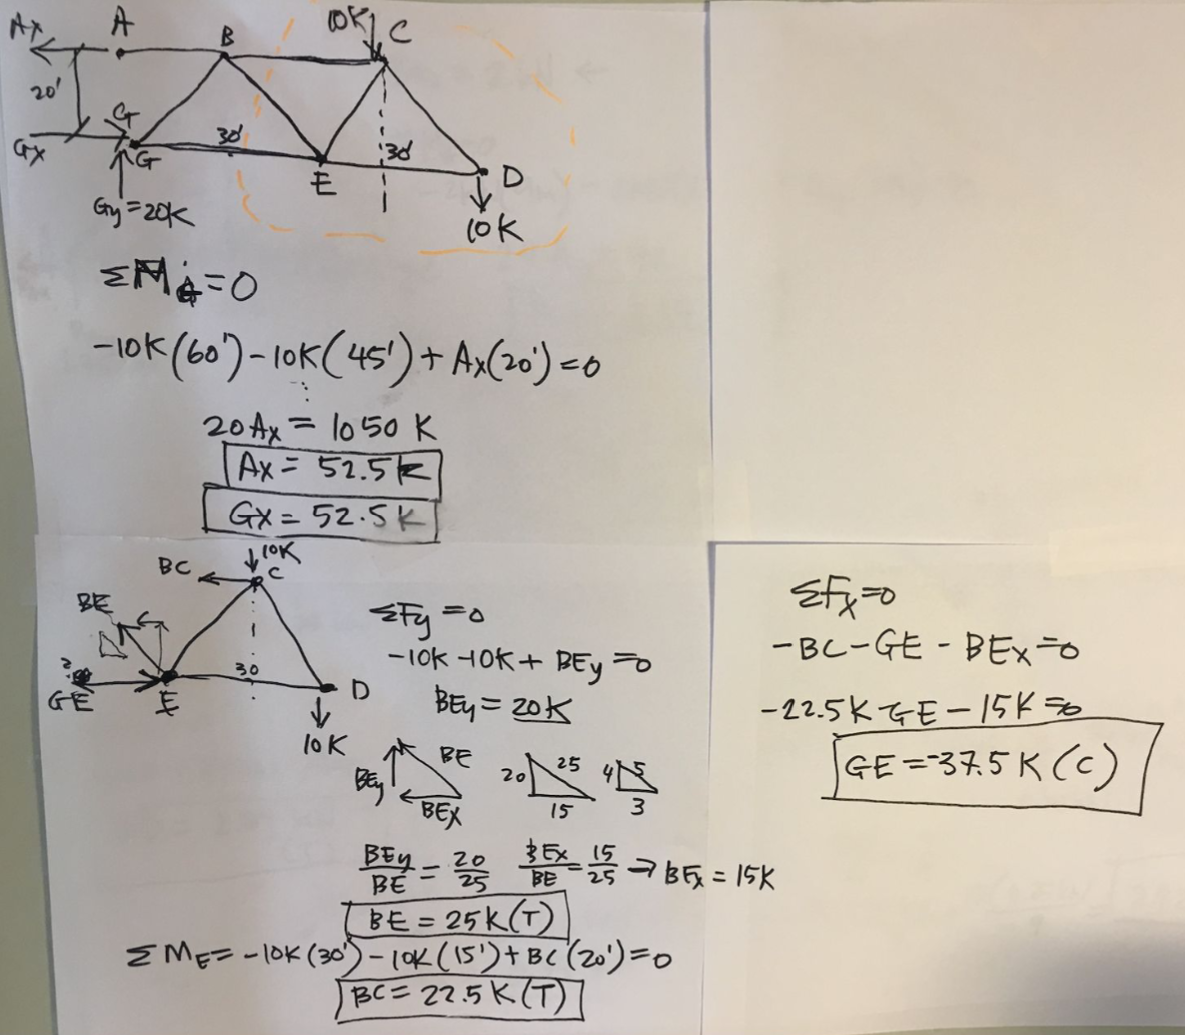 Ax A B 10K C
20'
G
Gx G 30' 30' D
E
Gy=20K 10K
ΣM =0
-10K(60')-10K(45')+Ax(20')=0
20Ax = 1050 K
Ax = 52.5K
Gx = 52.5K
10K
BC C
BE
?
GE E 30 D
10K
ΣFy=0
-10K-10K+BEy=0
BEy=20K
BEy BE BEx 20 25 15 4 5 3
BEy/BE = 20/25 BEx/BE = 15/25 → BEx = 15K
BE = 25K(T)
ΣME = -10K(30')-10K(15')+BC(20')=0
BC = 22.5K(T)
ΣFx=0
-BC-GE-BEx=0
-22.5K-GE-15K=0
GE=-37.5K(C)